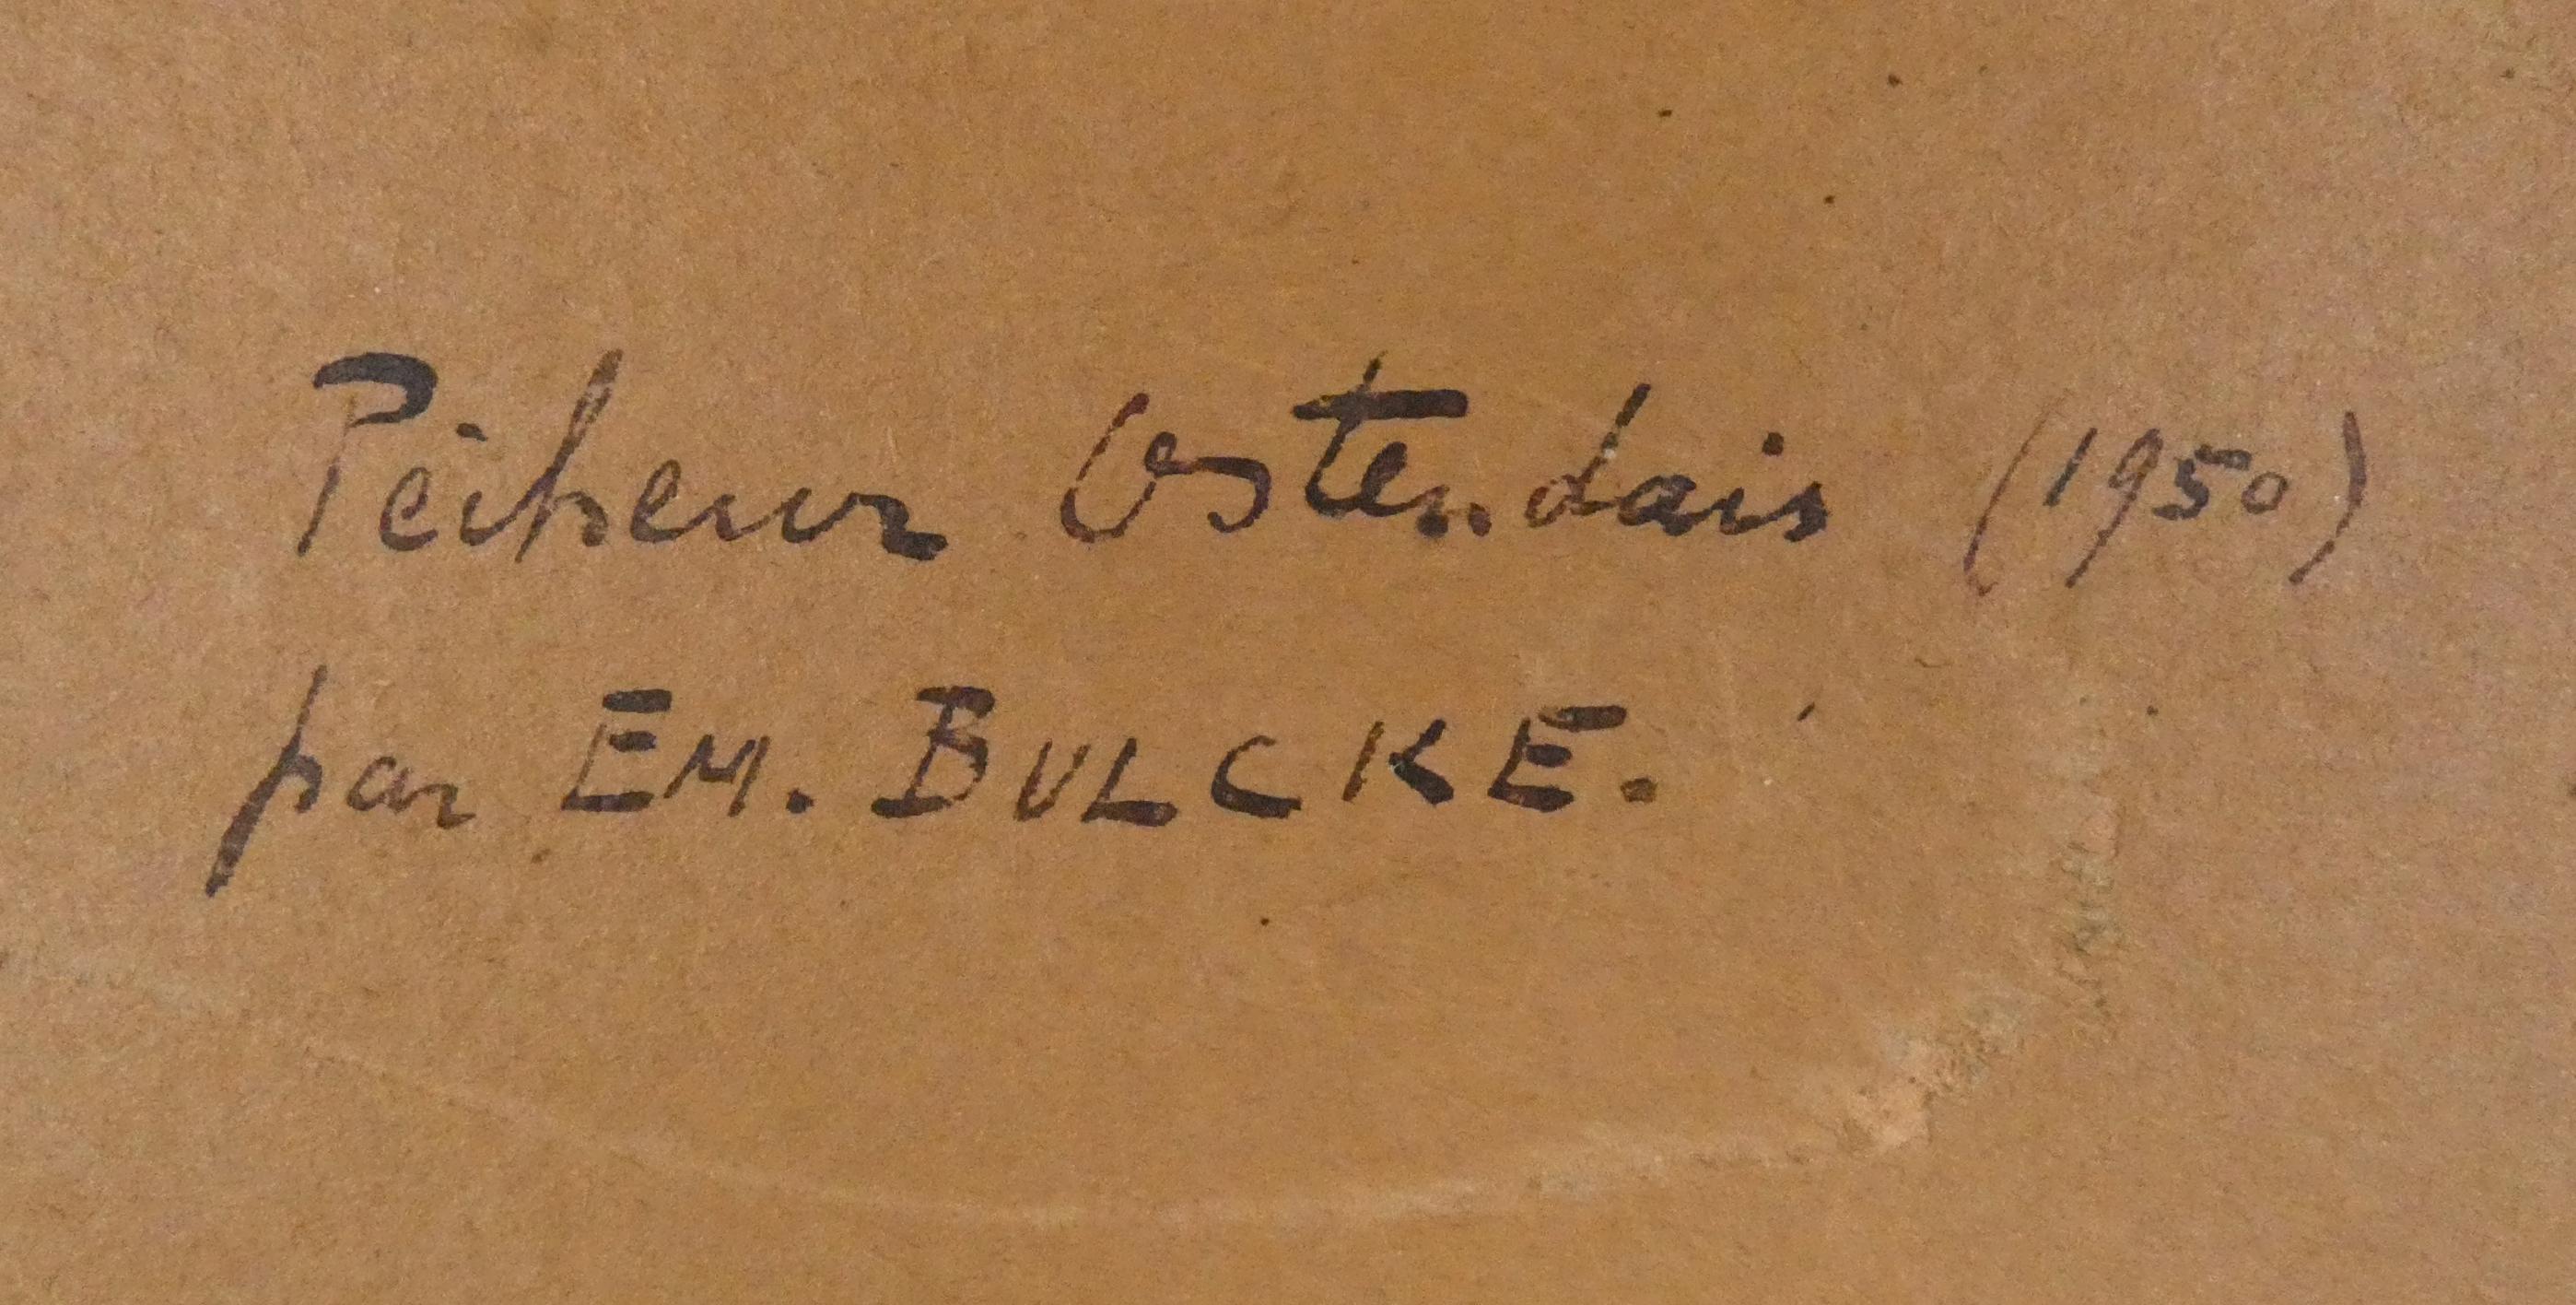 Pêcheur Ostendais (1950)
par EM. BULCKE.